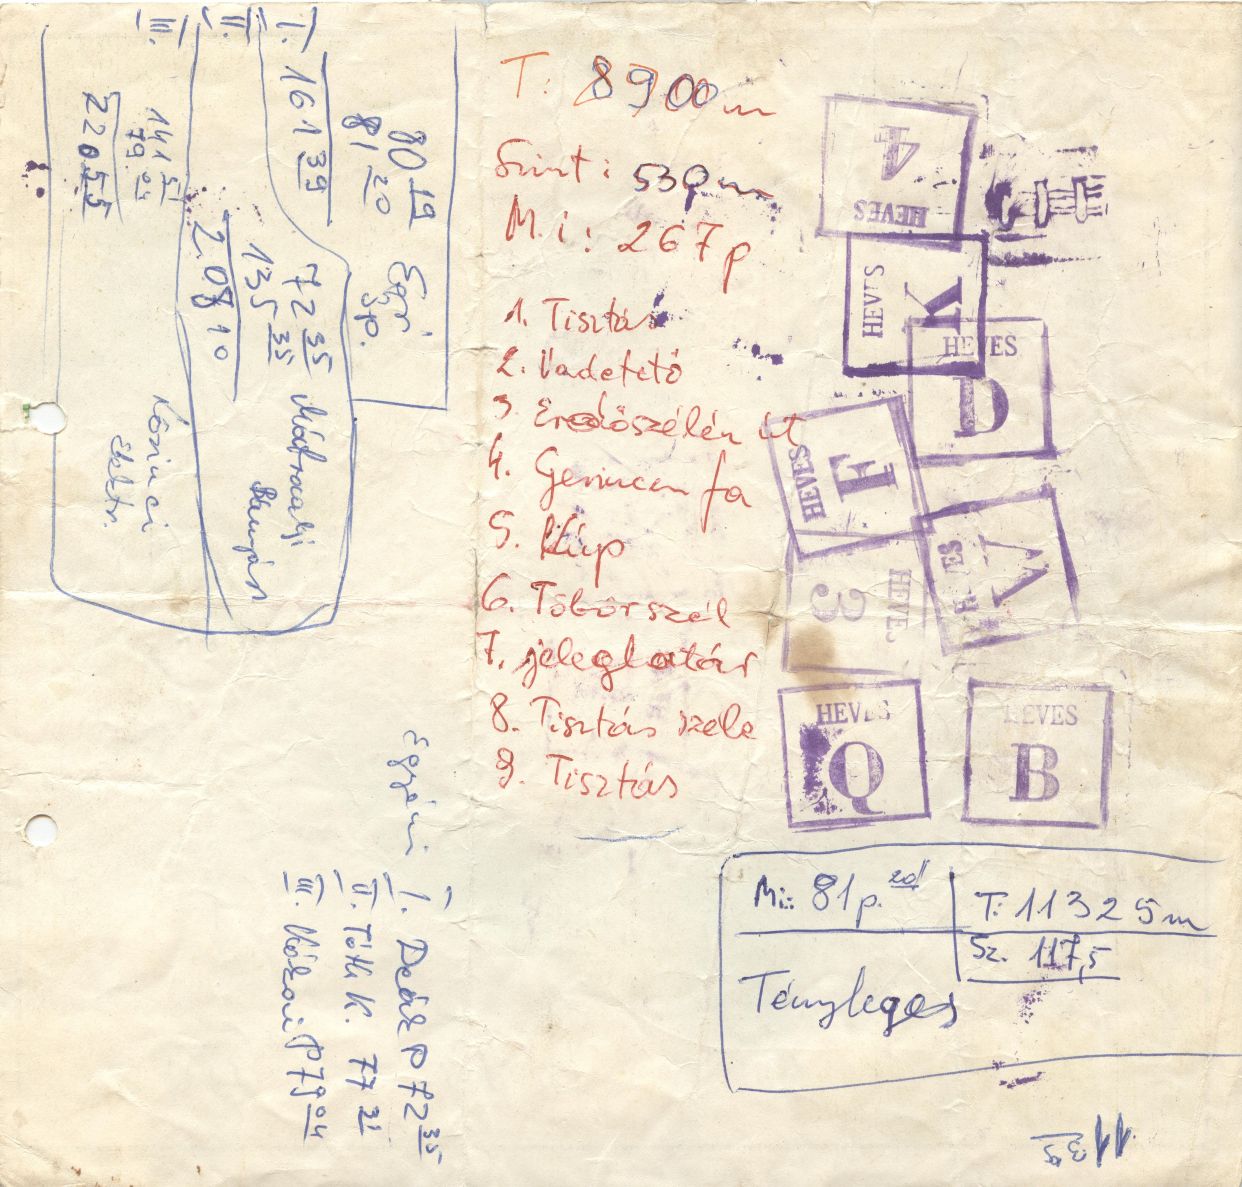 T: 8900 m
Szint: 530 m
M.i: 267 p
1. Tisztás
2. Vadetető
3. Erdőszélén út
4. Gerincen fa
5. Kúp
6. Töbörszél
7. jeleghatár
8. Tisztás széle
9. Tisztás
4
HEVES
HEVES
K
HEVES
D
HEVES
F
HEVES
A
HEVES
3
HEVES
Q
HEVES
B
Mi: 81 p. 20"
T: 11325 m
Sz. 117,5
Tényleges
11 39
80 19
81 20
I. 161 39
Egri
Sp.
II.
72 35
135 35
208 10
Mátraalji
Bányász
III.
141 51
79 04
220 55
Egyéni
I. Deák P 72 35
II. Tóth K. 77 31
III. P 79 04